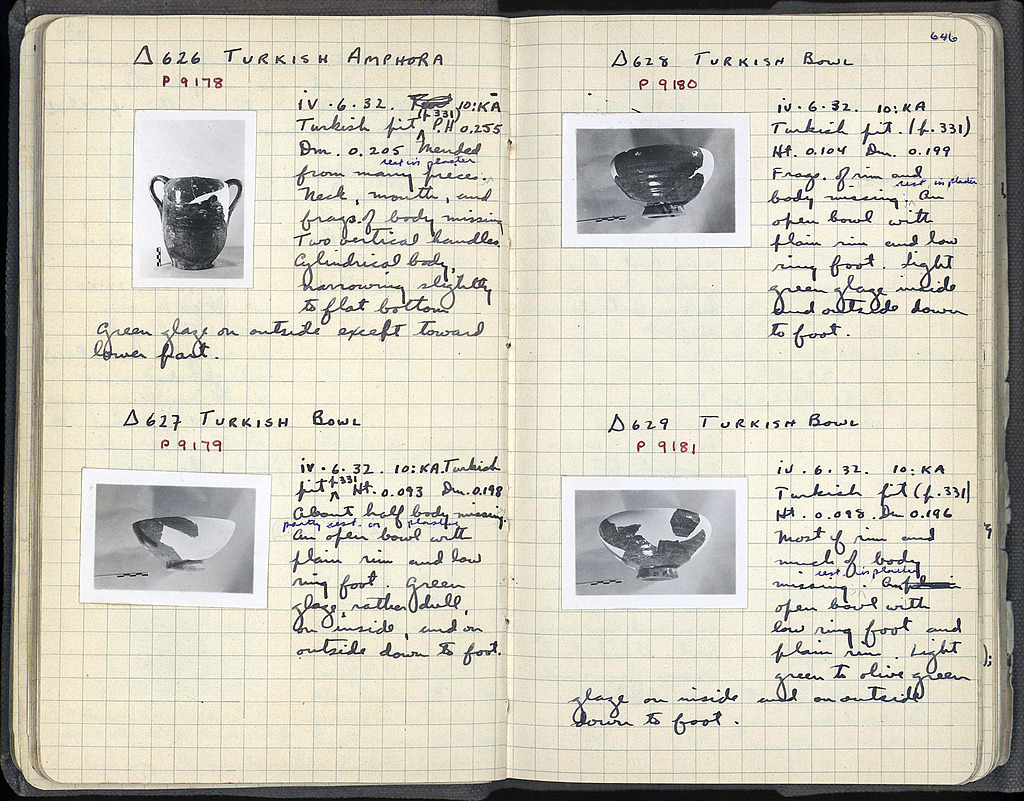 Δ 626 TURKISH AMPHORA
P 9178
IV · 6 · 32. 10:KĀ
(p.331)
Turkish pit P.H 0.255
Dm. 0.205 Mended
rest in plaster
from many pieces.
Neck, mouth, and
frags. of body missing
Two vertical handles.
Cylindrical body,
narrowing slightly
to flat bottom
Green glaze on outside except toward
lower part.
Δ 627 TURKISH BOWL
P 9179
IV · 6 · 32. 10:KA. Turkish
p.331
pit Ht. 0.093 Dm. 0.198
About half body missing.
partly rest. in plaster
An open bowl with
plain rim and low
ring foot. Green
glaze, rather dull,
on inside, and on
outside down to foot.
646
Δ 628 TURKISH BOWL
P 9180
IV · 6 · 32. 10:KA
Turkish pit. (p.331)
Ht. 0.104 Dm. 0.199
Frags. of rim and
rest in plaster
body missing. An
open bowl with
plain rim and low
ring foot. Light
green glaze inside
and outside down
to foot.
Δ 629 TURKISH BOWL
P 9181
IV · 6 · 32. 10:KA
Turkish pit (p.331)
Ht. 0.098. Dm 0.196
Most of rim and
much of body
rest. in plaster
missing. An
open bowl with
low ring foot and
plain rim. Light
green to olive green
glaze on inside and on outside
down to foot.